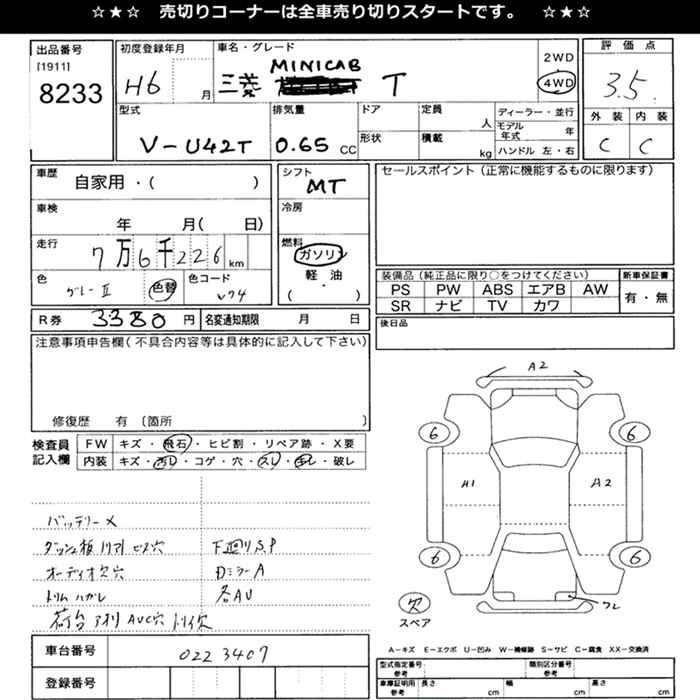 ☆★☆ 売切りコーナーは全車売り切りスタートです。 ☆★☆
出品番号
[1911]
8233
初度登録年月
H6 月
車名・グレード
三菱 MINICAB T
2WD
4WD
評価点
3.5
外装 内装
C C
型式
V-U42T
排気量
0.65 CC
ドア
形状
定員 人
積載 kg
ディーラー・並行
モデル年式 年
ハンドル 左・右
車歴
自家用・( )
車検
年 月( 日)
走行
7万6千226km
色
グレーII 色替
色コード
V74
シフト
MT
冷房
燃料
ガソリン
軽油
( ・ )
セールスポイント(正常に機能するものに限ります)
装備品(純正品に限り○をつけてください)
PS PW ABS エアB AW
SR ナビ TV カワ
新車保証書
有・無
R券 3380円
名変通知期限 月 日
後日品
注意事項申告欄(不具合内容等は具体的に記入して下さい)
修復歴 有 〔箇所 〕
検査員記入欄
FW キズ・飛石・ヒビ割・リペア跡・X要
内装 キズ・汚レ・コゲ・穴・スレ・キレ・破レ
バッテリーX
ダッシュ板 ハリアリ ビス穴
下廻りS.P
オーディオ欠穴
DミラーA
トリム ハガレ
各AU
荷台 アオリ AUC穴
車台番号
0223407
登録番号
A2
6
6
A1
A2
6
6
欠
スペア
A-キズ E-エクボ U-凹み W-補修跡 S-サビ C-腐食 XX-交換済
型式指定番号
参考
類別区分番号
参考
車庫証明用
参考
長さ cm
幅 cm
高さ cm